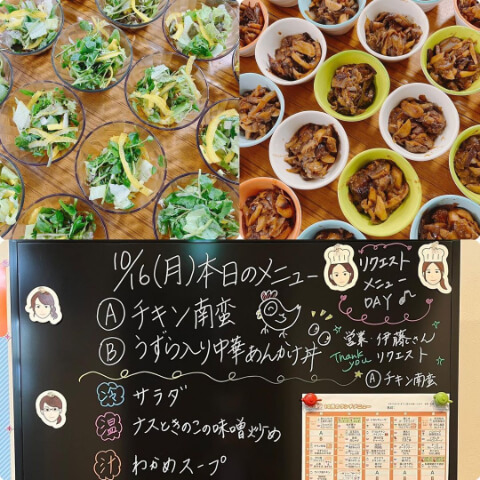 10/16(月)本日のメニュー
Ⓐ チキン南蛮
Ⓑ うずら入り中華あんかけ丼
冷 サラダ
温 ナスときのこの味噌炒め
汁 わかめスープ
リクエスト
メニュー
DAY♪
営業・伊藤さん
Thank you リクエスト
Ⓐ チキン南蛮